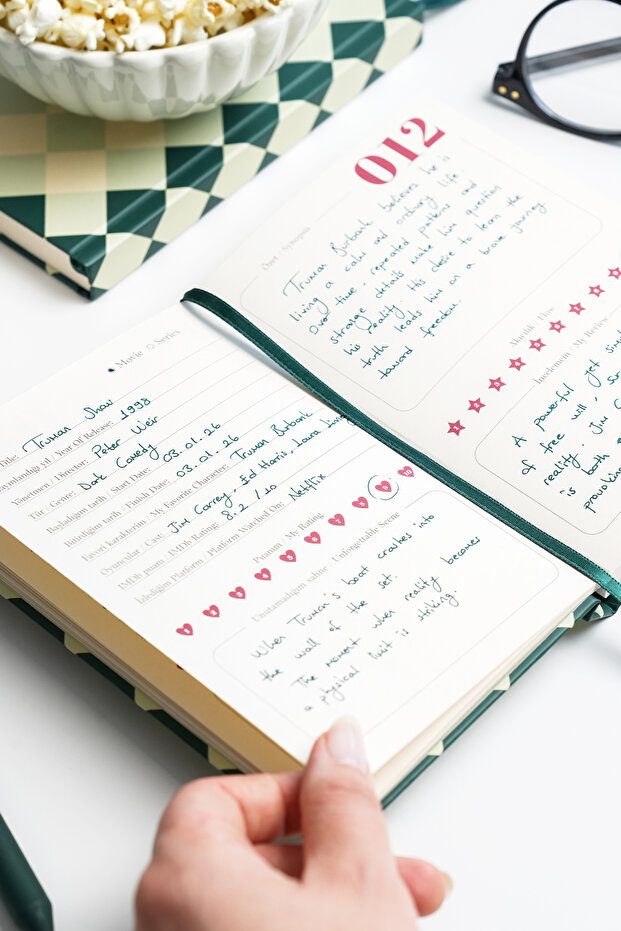 Movie Series
Title: Truman Show
Yayımladığı yıl / Year Of Release: 1998
Yönetmen / Director: Peter Weir
Tür / Genre: Dark Comedy
Başladığım tarih / Start Date: 03.01.26
Bitirdiğim tarih / Finish Date: 03.01.26
Favori karakterim / My Favorite Character: Truman Burbank
Oyuncular / Cast: Jim Carrey, Ed Harris, Laura
IMDb puanı / IMDb Rating: 8.2/10
İzlediğim Platform / Platform Watched On: Netflix
Puanım / My Rating
1 2 3 4 5 6 7 8 9 10
Unutamadığım sahne / Unforgettable Scene
When Truman's boat crashes into
the wall of the set.
The moment when reality becomes
a physical limit is striking.
012
Özet / Synopsis
Truman Burbank believes he is
living a calm and ordinary life
over time, repeated patterns and
strange details make him question
his reality. His desire to learn the
truth leads him on a brave journey
toward freedom.
Akıcılık / Flow
1 2 3 4 5 6 7 8
İncelemem / My Review
A powerful yet
of free will,
reality. Jim
is both
provoking